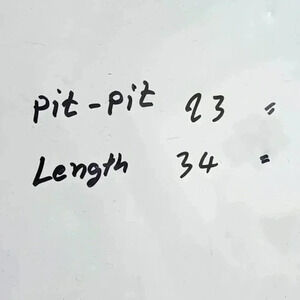 Pit-Pit 23 "
Length 34 "